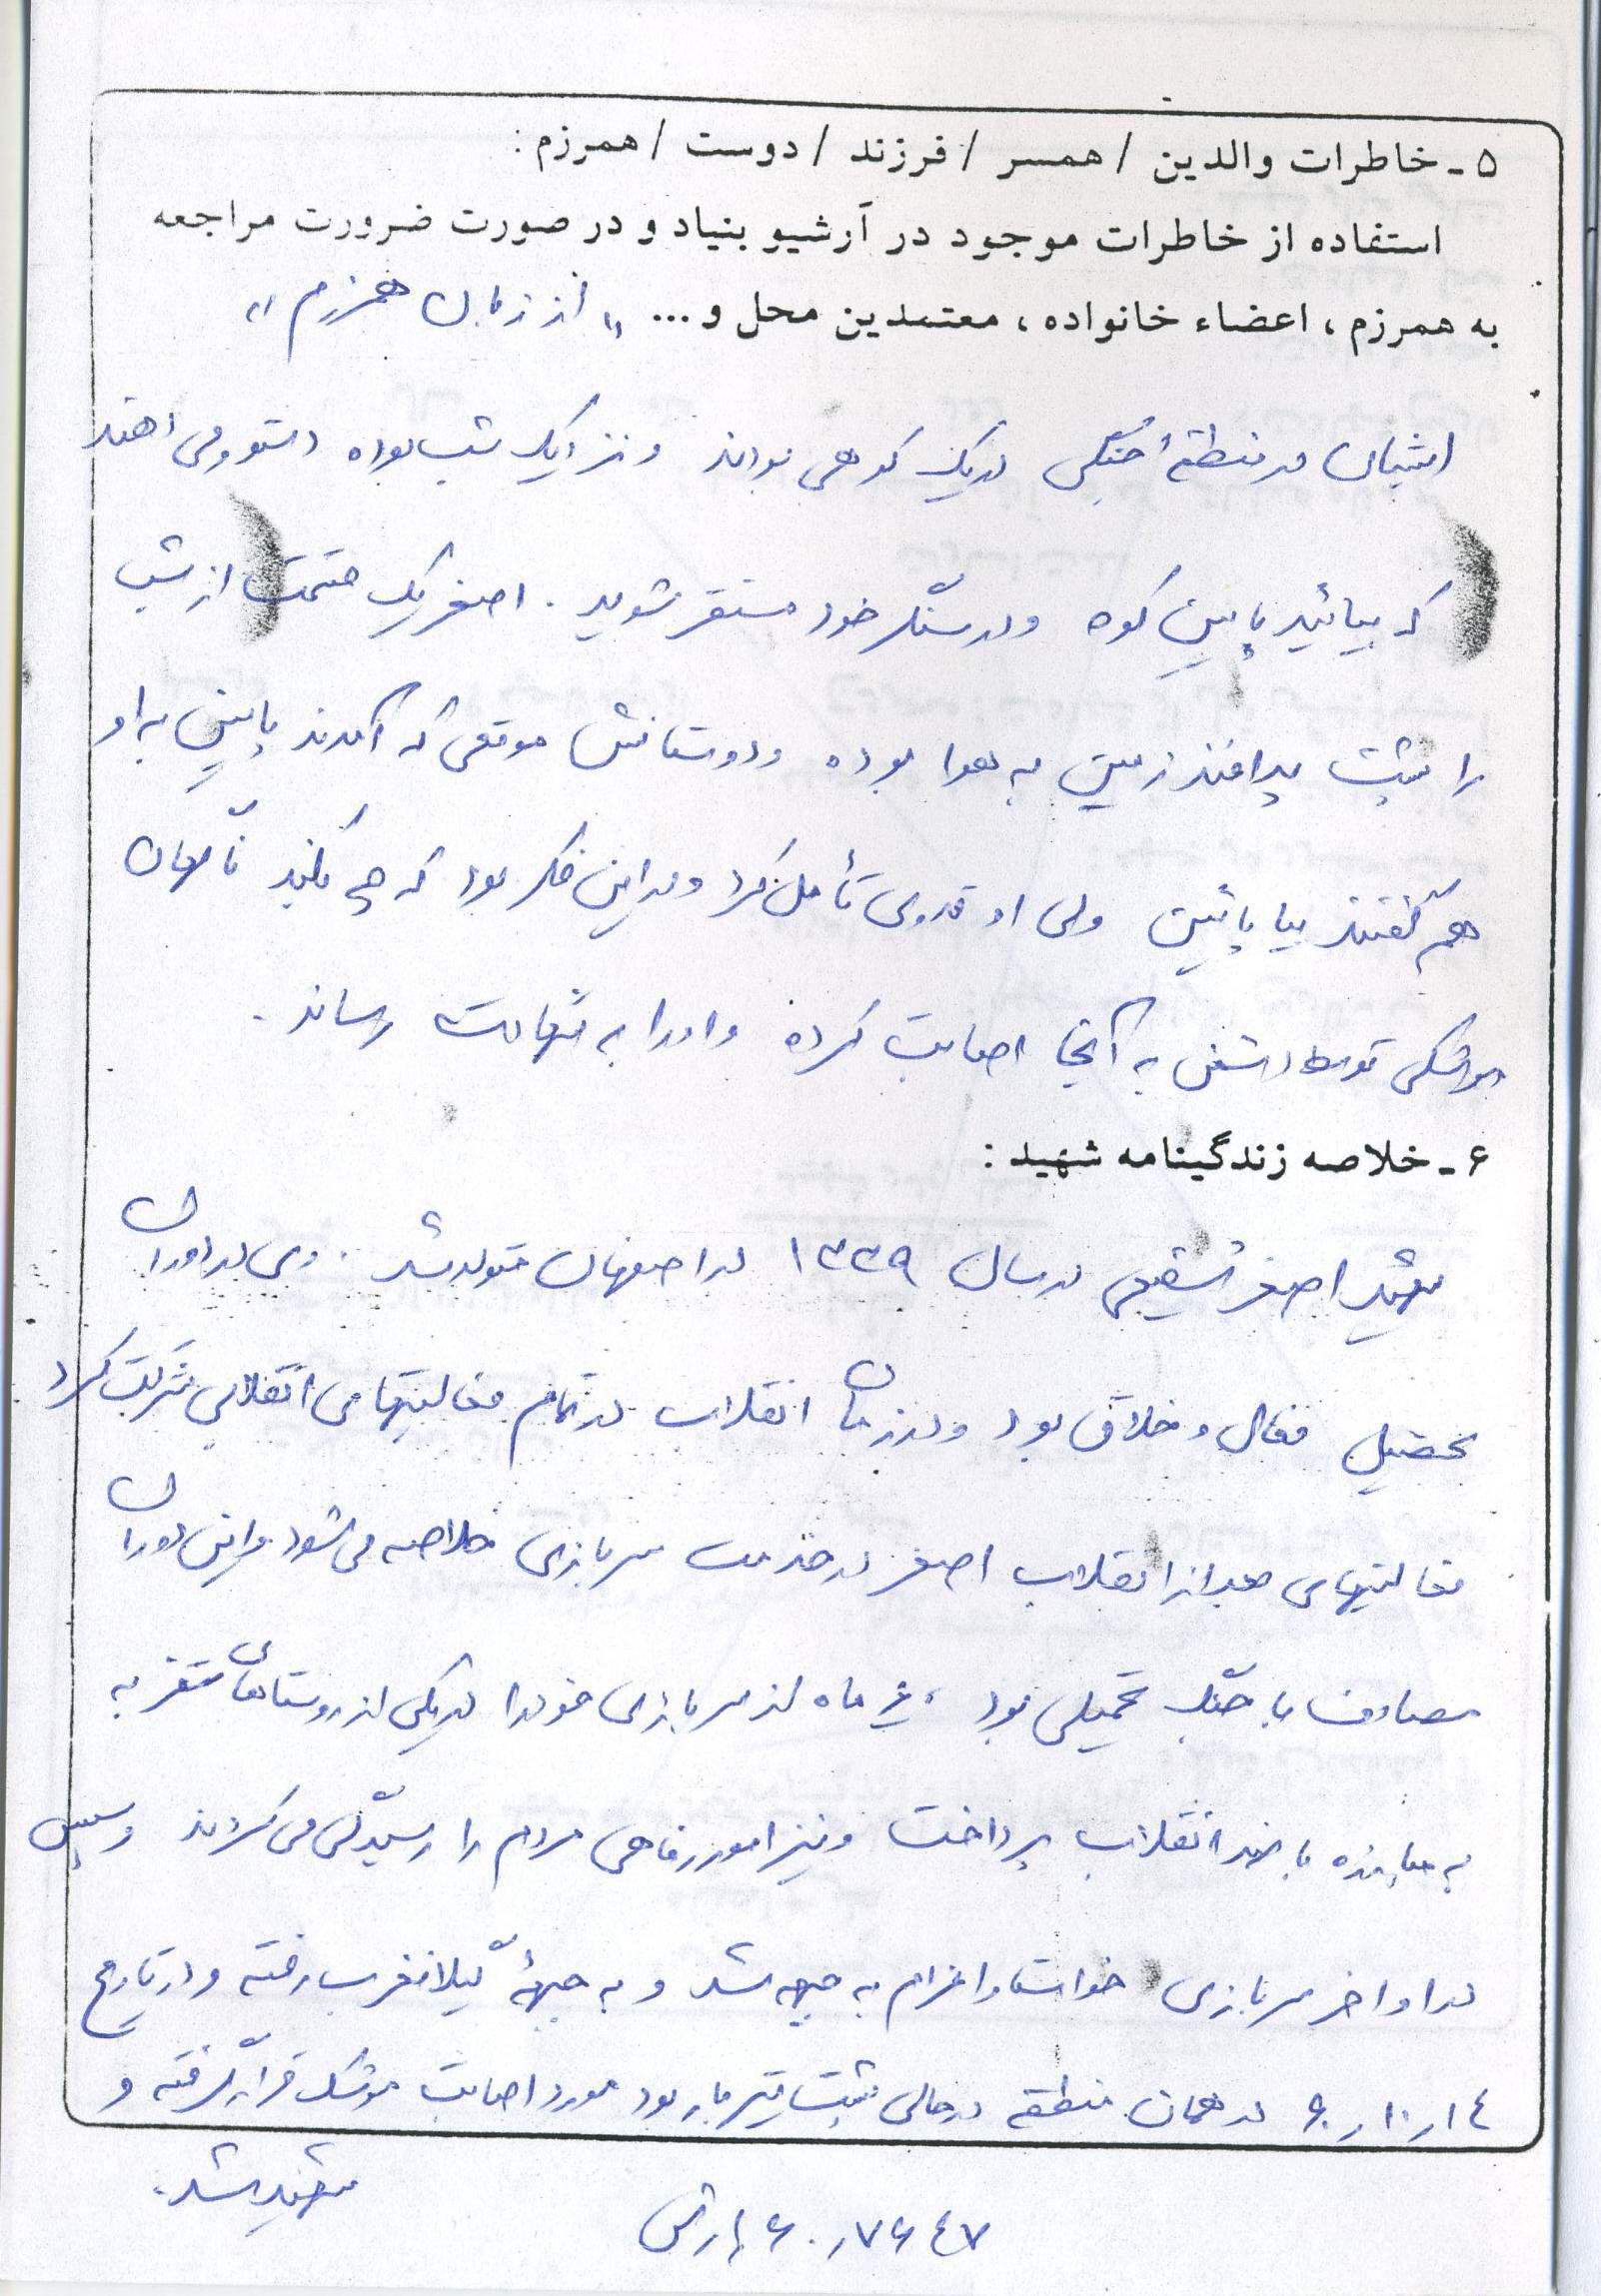 ۵ - خاطرات والدین / همسر / فرزند / دوست / همرزم :
استفاده از خاطرات موجود در آرشیو بنیاد و در صورت ضرورت مراجعه
به همرزم ، اعضاء خانواده ، معتمدین محل و ... « از زبان همرزم »
ایشان در منطقه جنگی در یک کوهی بودند و نزدیک شب بوده دستور می دهند
که بیائید پایین کوه و در سنگر خود مستقر شوید . اصغر یک قسمت از شب
را پشت پدافند زمین به هوا بوده و دوستانش موقعی که آمدند پایین به او
هم گفتند بیا پائین ولی او قدری تأمل کرد و در این فکر بود که چه بکند ناگهان
موشکی توسط دشمن به آنجا اصابت کرده و او را به شهادت رساند .
۶ - خلاصه زندگینامه شهید :
شهید اصغر شفیعی در سال ۱۳۳۹ در اصفهان متولد شد . وی در دوران
تحصیل فعال و خلاق بود و در زمان انقلاب در تمام فعالیتهای انقلابی شرکت کرد
فعالیتهای بعد از انقلاب اصغر در خدمت سربازی خلاصه می شود و این دوران
مصادف با جنگ تحمیلی بود ، ۶ ماه از سربازی خود را در یکی از روستاهای سقز به
به مبارزه با ضد انقلاب پرداخت و نیز امور رفاهی مردم را رسیدگی می کردند و سپس
در اواخر سربازی خواستار اعزام به جبهه شد و به جبهه گیلانغرب رفته و در تاریخ
۶۰٫۱۰٫۱۴ در همان منطقه در حالی پشت تیربار بود مورد اصابت موشک قرار گرفته و
شهید شد .
۶۰٫۷۶۴۷ / ارتش